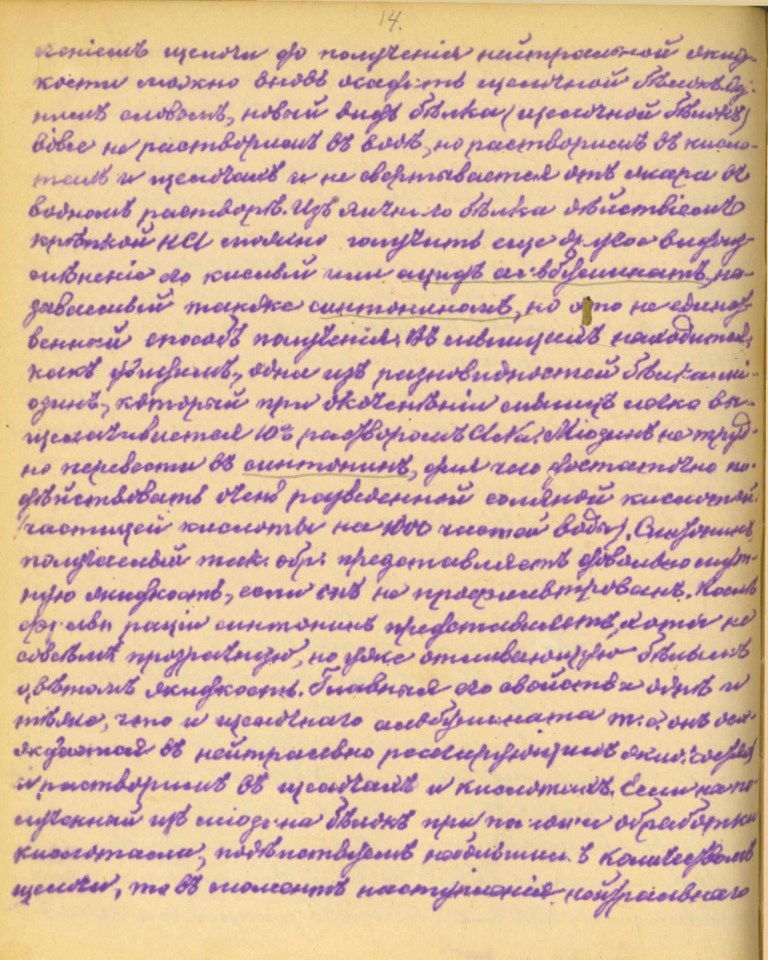 14.
леніемъ щелочи до полученія нейтральной жид-
кости можно вновь осадить щелочной бѣлокъ. Од-
нимъ словомъ, новый видъ бѣлка (щелочной бѣлокъ)
вовсе не растворимъ въ водѣ, но растворимъ въ кисло-
тахъ и щелочахъ и не свертывается отъ жара въ
водномъ растворѣ. Изъ яичнаго бѣлка дѣйствіемъ
крѣпкой HCl можно получить еще другое видоиз-
мѣненіе его кислый или ацидъ альбуминатъ, на-
зываемый также синтониномъ, но это не единст-
венный способъ полученія. Въ мышцахъ находится,
какъ увидимъ, одна изъ разновидностей бѣлка мі-
озинъ, который при окоченѣніи мышцъ легко вы-
щелачивается 10% растворомъ ClNa. Міозинъ не труд-
но перевести въ синтонинъ, для чего достаточно по-
дѣйствовать очень разведенной соляной кислотой
частицей кислоты на 1000 частей воды). Синтонинъ,
получаемый так. обр. представляетъ довольно мут-
ную жидкость, если онъ не профильтрованъ. Послѣ
фильтраціи синтонинъ представляетъ, хотя не
совсѣмъ прозрачную, но уже отливающую бѣлымъ
цвѣтомъ жидкость. Главныя его свойства однѣ и
тѣже, что и щелочнаго альбумината т. е. онъ оса-
ждается въ нейтрально реагирующихъ жид.
и растворимъ въ щелочахъ и кислотахъ. Если на по-
лученный изъ міозина бѣлокъ при помощи обработки
кислотами, подѣйствуемъ небольшимъ количествомъ
щелочи, то въ моментъ наступленія нейтральнаго